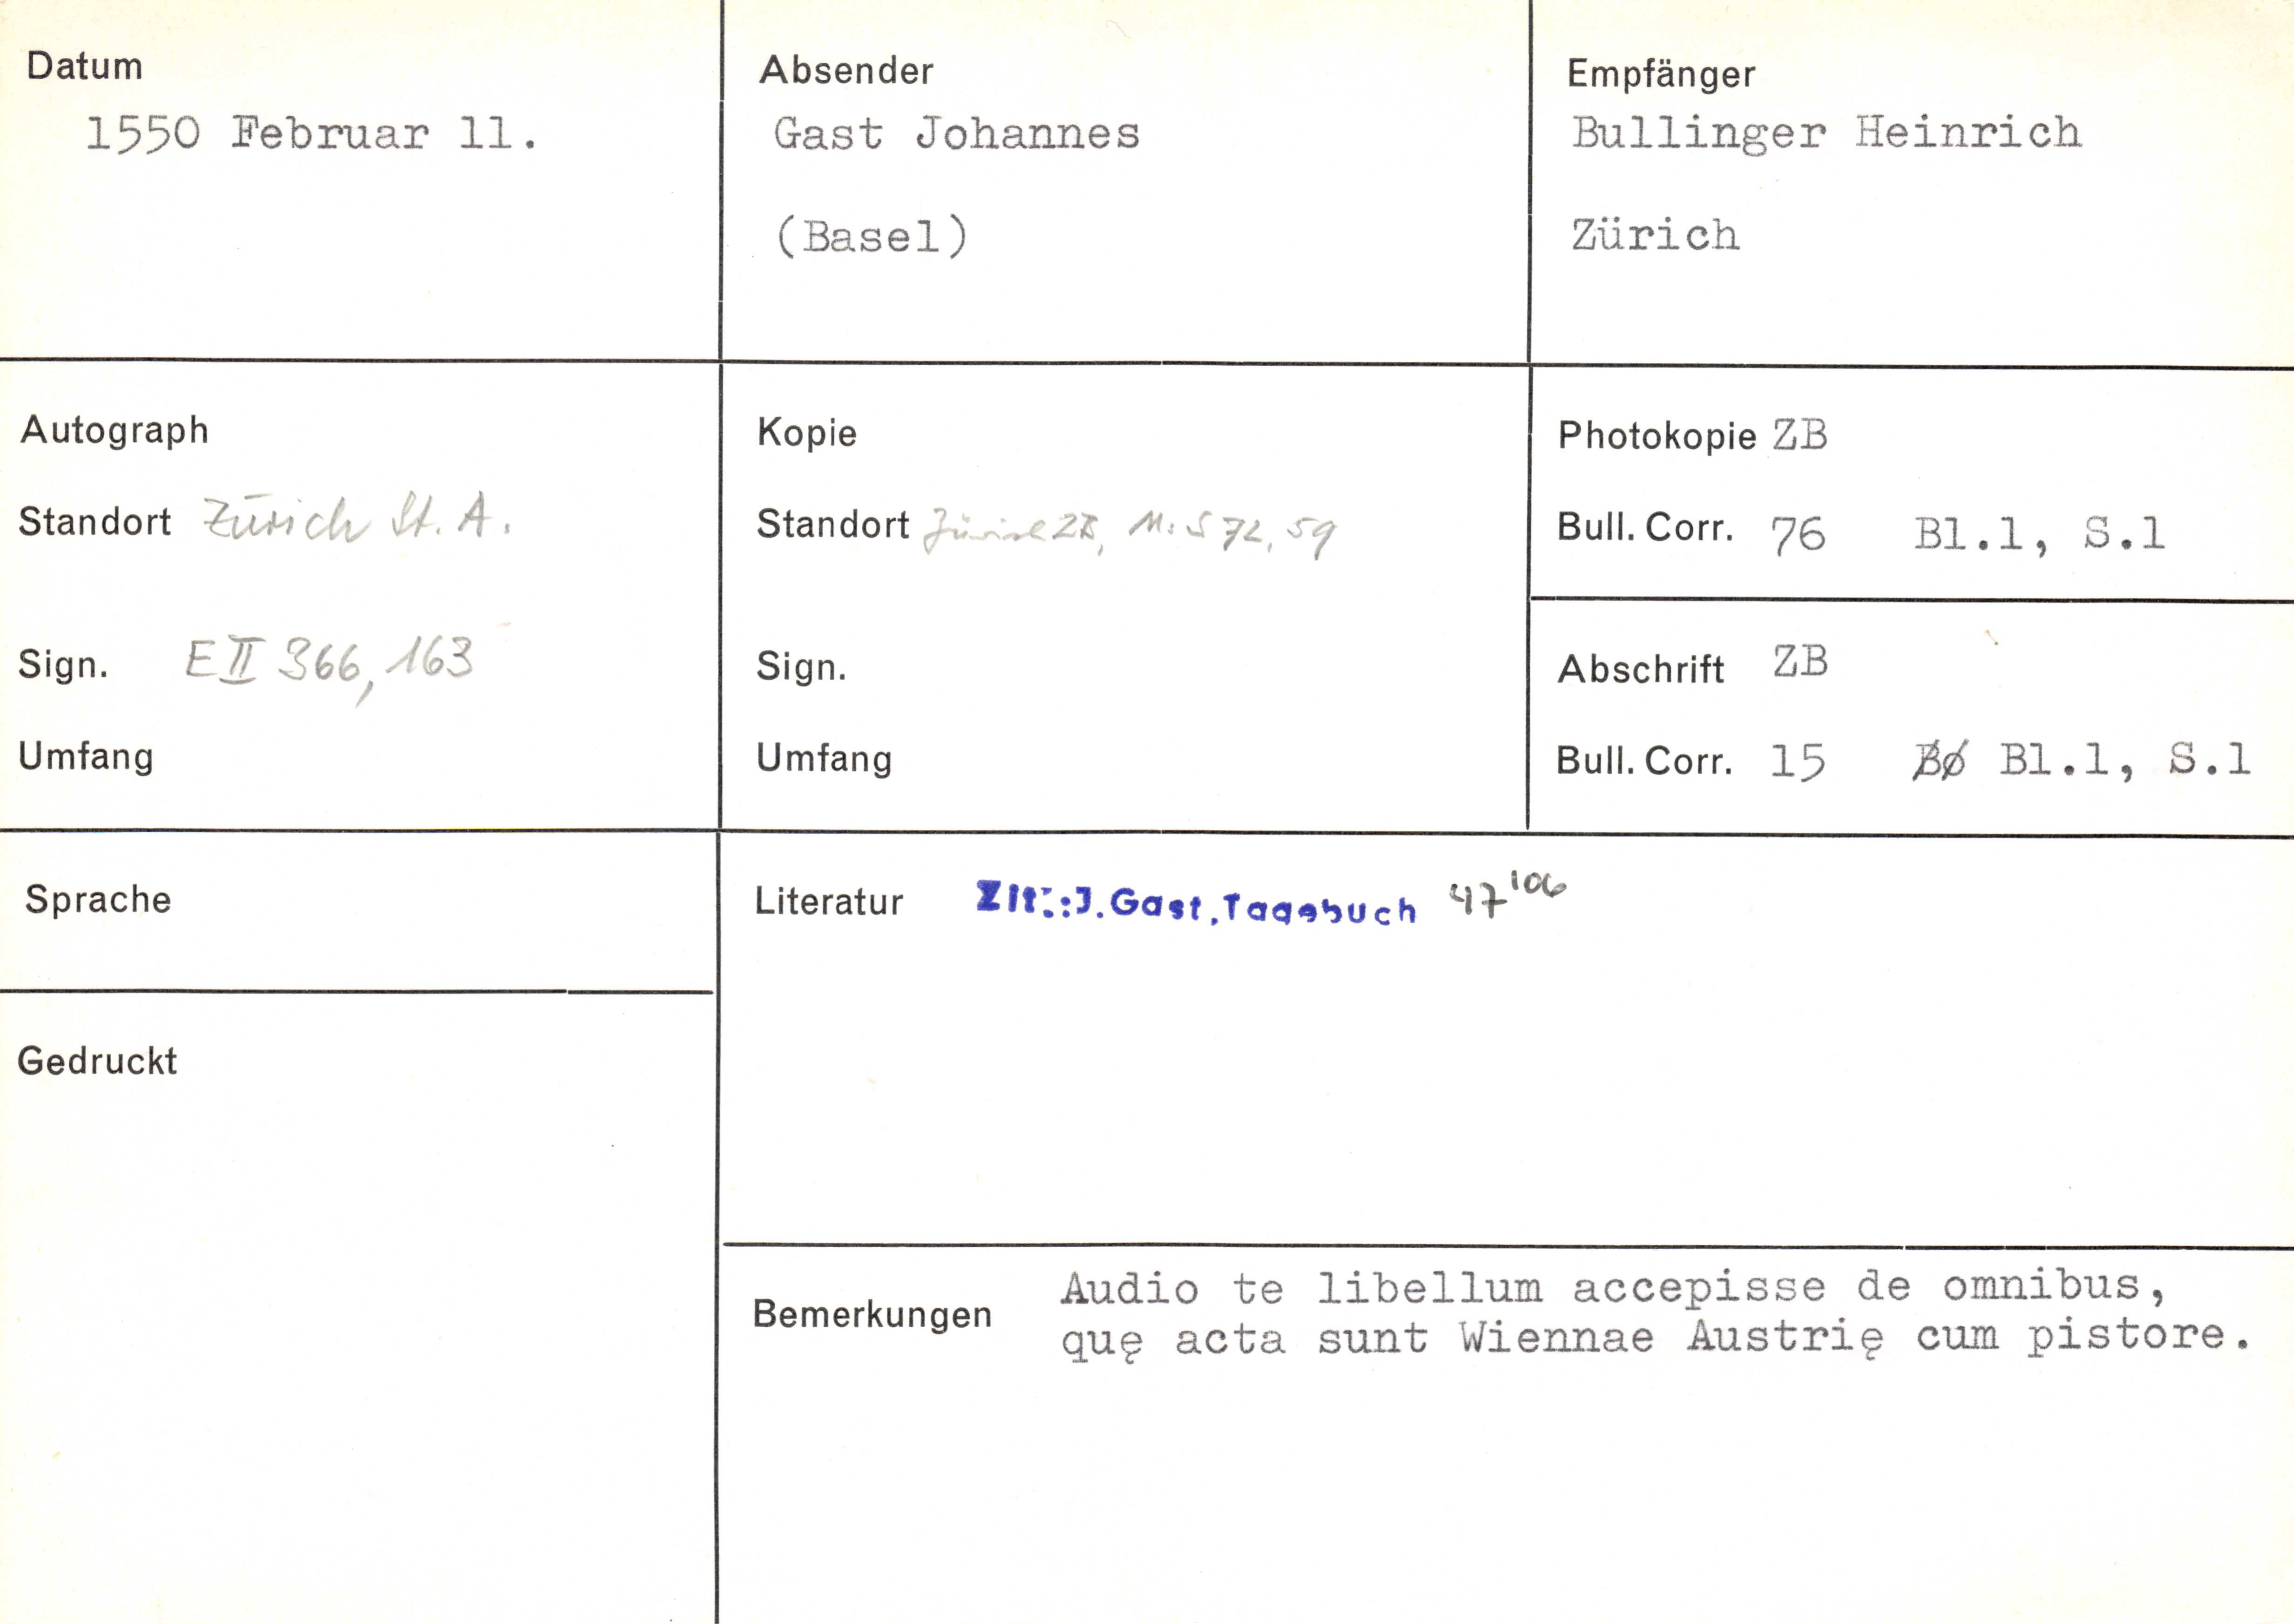 Datum
1550 Februar 11.
Absender
Gast Johannes
(Basel)
Empfänger
Bullinger Heinrich
Zürich
Autograph
Standort Zürich St. A.
Sign. E II 366, 163
Umfang
Kopie
Standort Zürich ZB, Ms S 72, 59
Sign.
Umfang
Photokopie ZB
Bull. Corr. 76 Bl.1, S.1
Abschrift ZB
Bull. Corr. 15 Bl.1, S.1
Sprache
Gedruckt
Literatur Zit.:J.Gast,Tagebuch 47¹⁰⁶
Bemerkungen Audio te libellum accepisse de omnibus,
quę acta sunt Wiennae Austrię cum pistore.